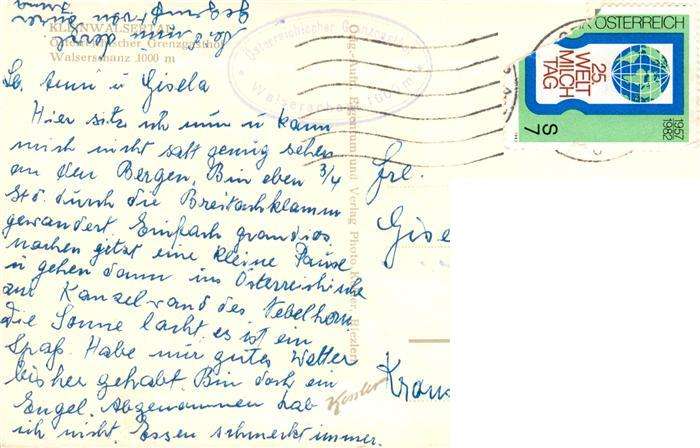 KLEINWALSERTAL
Österreichischer Grenzgasthof
Walserschanz 1000 m
Österreichischer Grenzgasthof
Walserschanz 1000 m
REPUBLIK ÖSTERREICH
25
WELT
MILCH
TAG
1957
1982
S7
Lb. Anni u Gisela
Hier sitz ich nun u kann
mich nicht satt genug sehen
an den Bergen. Bin eben 3/4
Std. durch die Breitachklamm
gewandert. Einfach grandios.
machen jetzt eine kleine Pause
u gehen dann ins Österreichische
zur Kanzelwand des Nebelhorn
Die Sonne lacht. es ist ein
Spaß. Habe nur gutes Wetter
bisher gehabt. Bin doch ein
Engel. Abgenommen hab
ich nicht. Essen schmeckt immer.
Org.-Aufn. Eigentum und Verlag Photo Riezlern
Kessler
Frl.
Gise
Kron